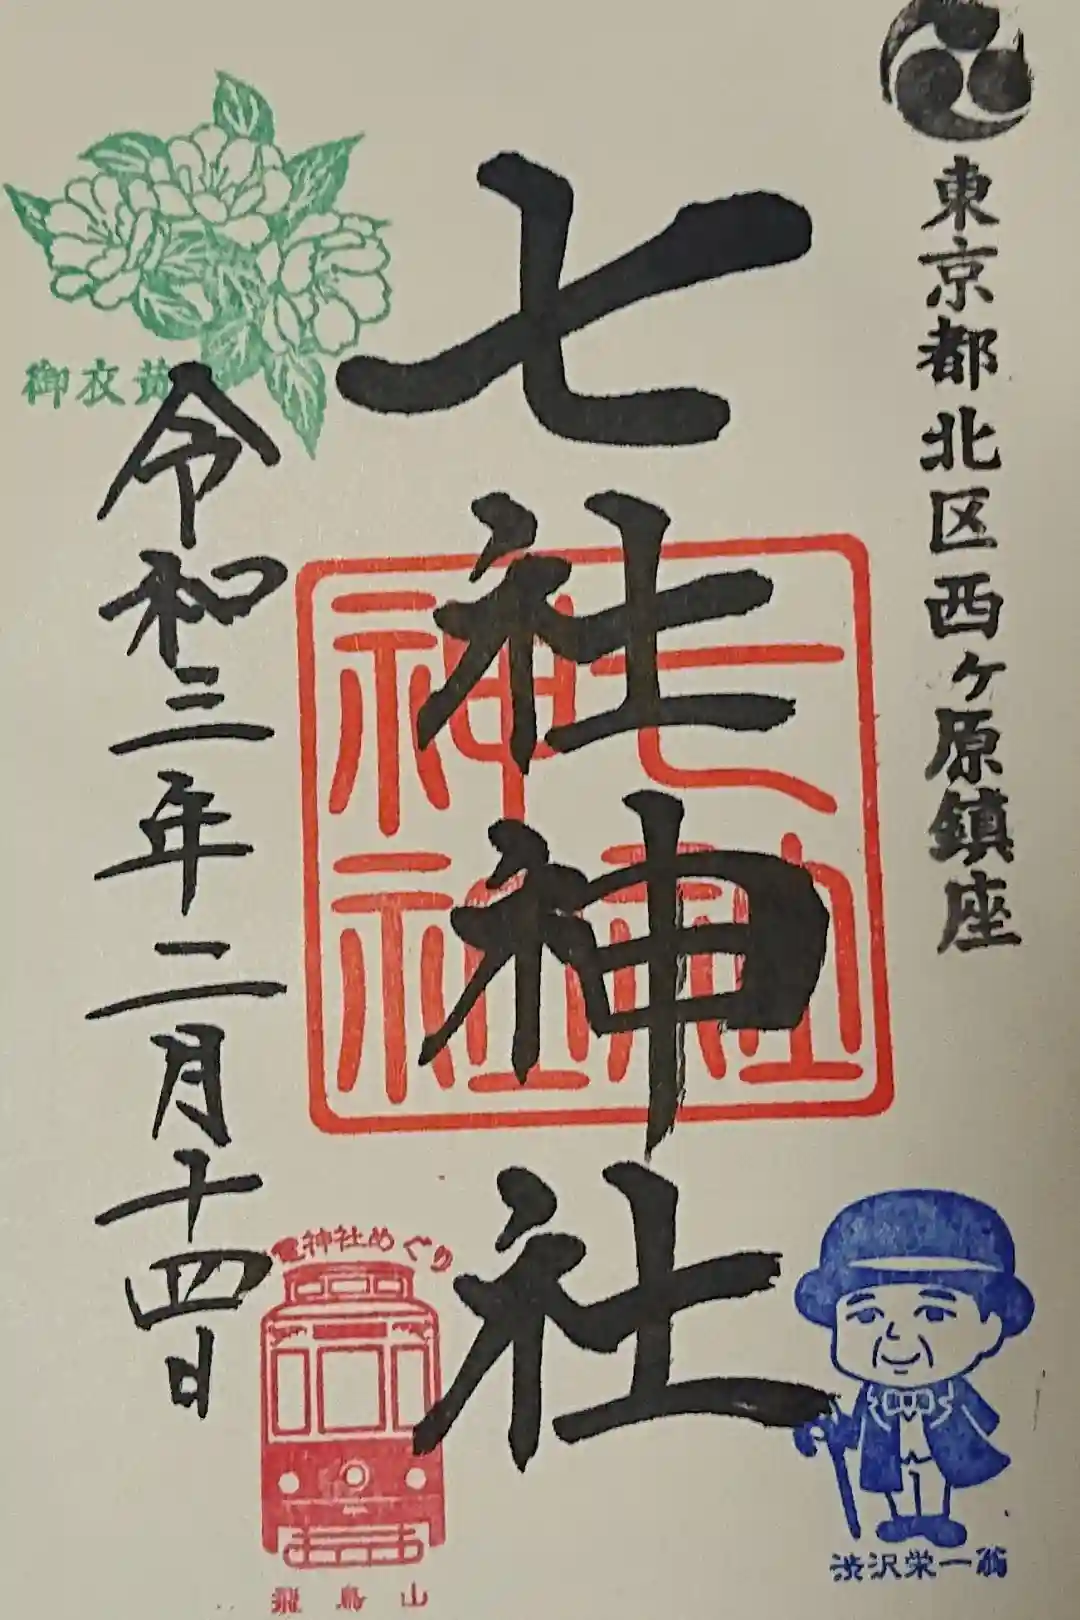 東京都北区西ヶ原鎮座
七社神社
七社神社
令和三年二月十四日
御衣黄
神社めぐり
飛鳥山
渋沢栄一翁